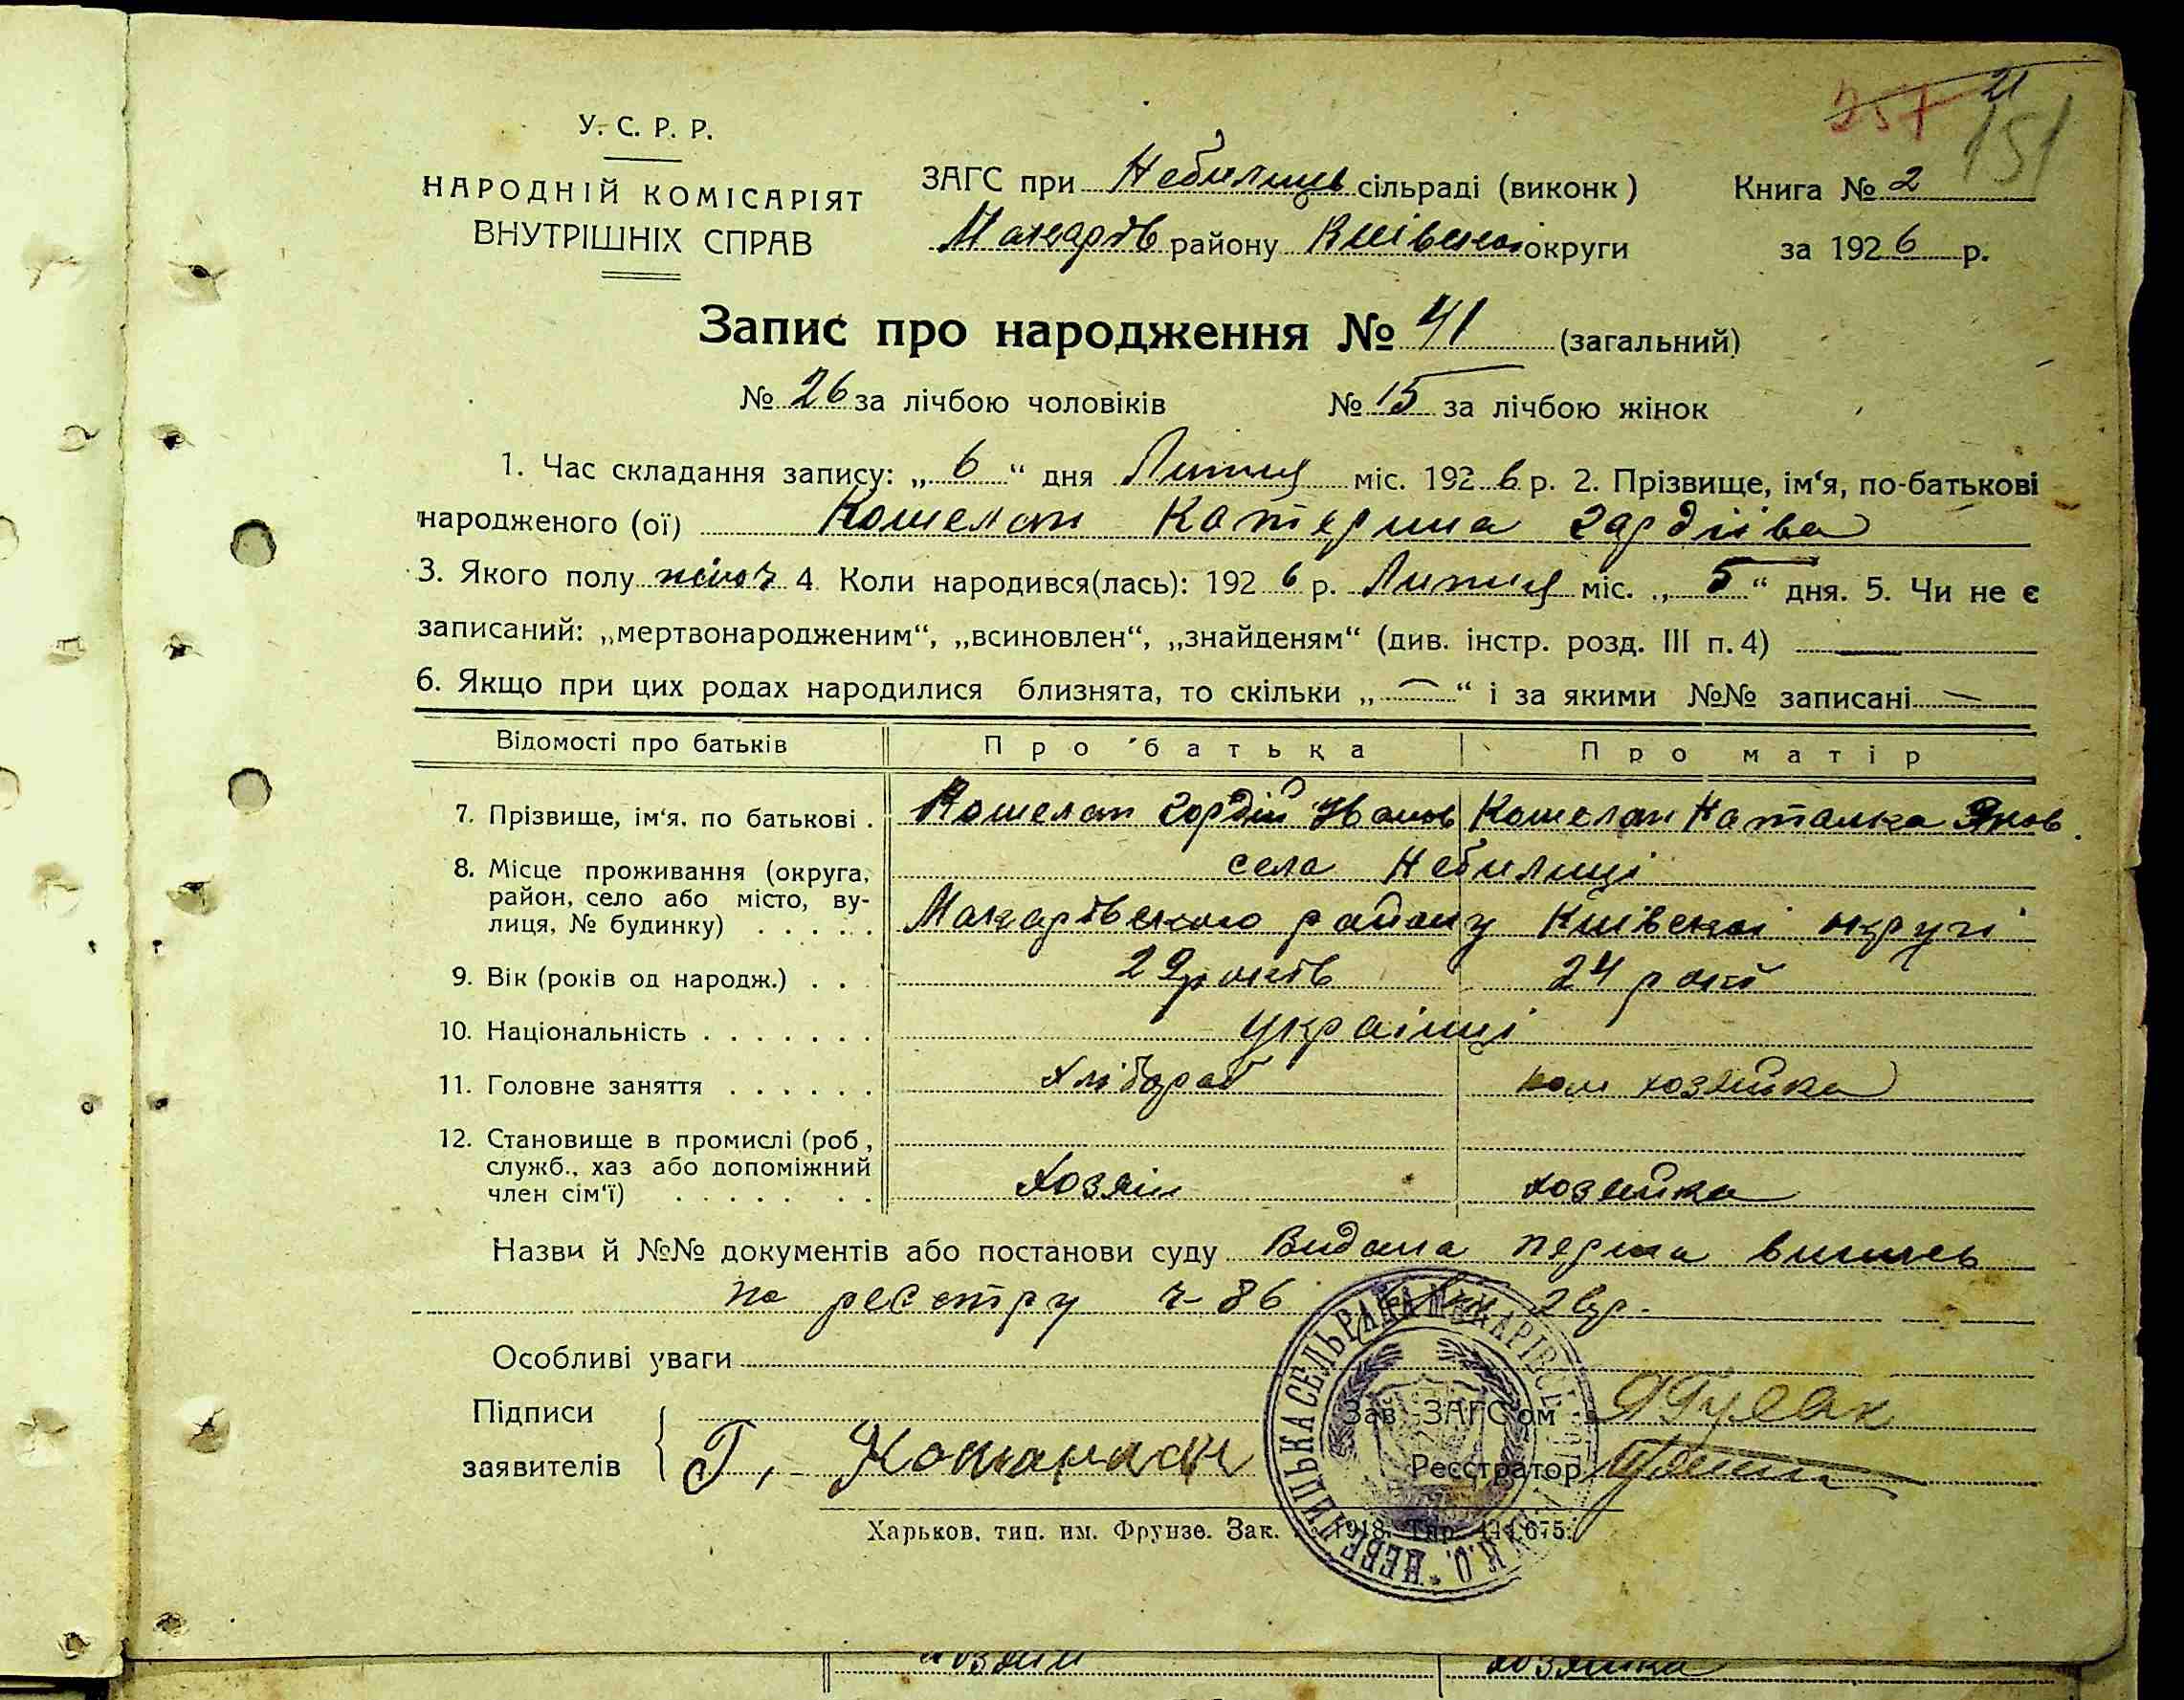 257 21
151
У. С. Р. Р.
НАРОДНІЙ КОМІСАРІЯТ
ВНУТРІШНІХ СПРАВ
ЗАГС при Небилиць сільраді (виконк)
Макарів району Київської округи
Книга № 2
за 1926 р.
Запис про народження № 41 (загальний)
№ 26 за лічбою чоловіків № 15 за лічбою жінок
1. Час складання запису: „ 6 “ дня Липця міс. 1926 р. 2. Прізвище, ім‘я, по-батькові
народженого (ої) Кошелап Катерина Гардіїва
3. Якого полу жіноч 4. Коли народився(лась): 1926 р. Липця міс. „ 5 “ дня. 5. Чи не є
записаний: „мертвонародженим“, „всиновлен“, „знайденям“ (див. інстр. розд. III п. 4) —
6. Якщо при цих родах народилися близнята, то скільки „ — “ і за якими №№ записані —
Відомості про батьків Про батька Про матір
7. Прізвище, ім‘я, по батькові . Кошелап Гордій Іванов Кошелап Наталка Яков.
8. Місце проживання (округа, села Небилиці
район, село або місто, ву- Макарівського району Київської округи
лиця, № будинку) . . . . .
9. Вік (років од народж.) . . 29 років 24 рокі
10. Національність . . . . . . . українці
11. Головне заняття . . . . . . Хлібороб дом хозяйка
12. Становище в промислі (роб,
служб., хаз або допоміжний
член сім‘ї) . . . . . . . Хозяін хозяйка
Назви й №№ документів або постанови суду Видана перша випись
по реєстру ч 86
Особливі уваги
Підписи
заявителів Г. Кошалап
Зав. ЗАГС‘ом
Реєстратор
НЕБЕЛИЦЬКА СЕЛЬРАДА МАКАРІВСЬК
Харьков, тип. им. Фрунзе. Зак. 1918. Тир. 444.675.
хозяін хозяйка